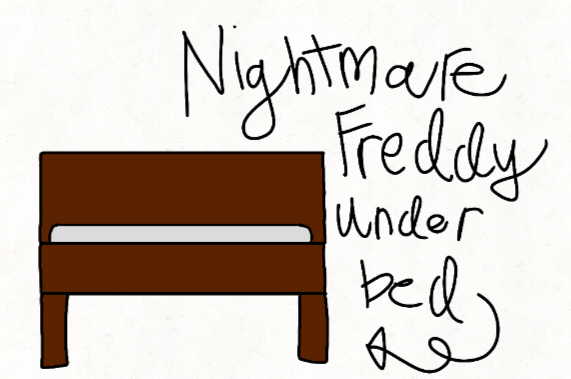 Nightmare
Freddy
under
bed